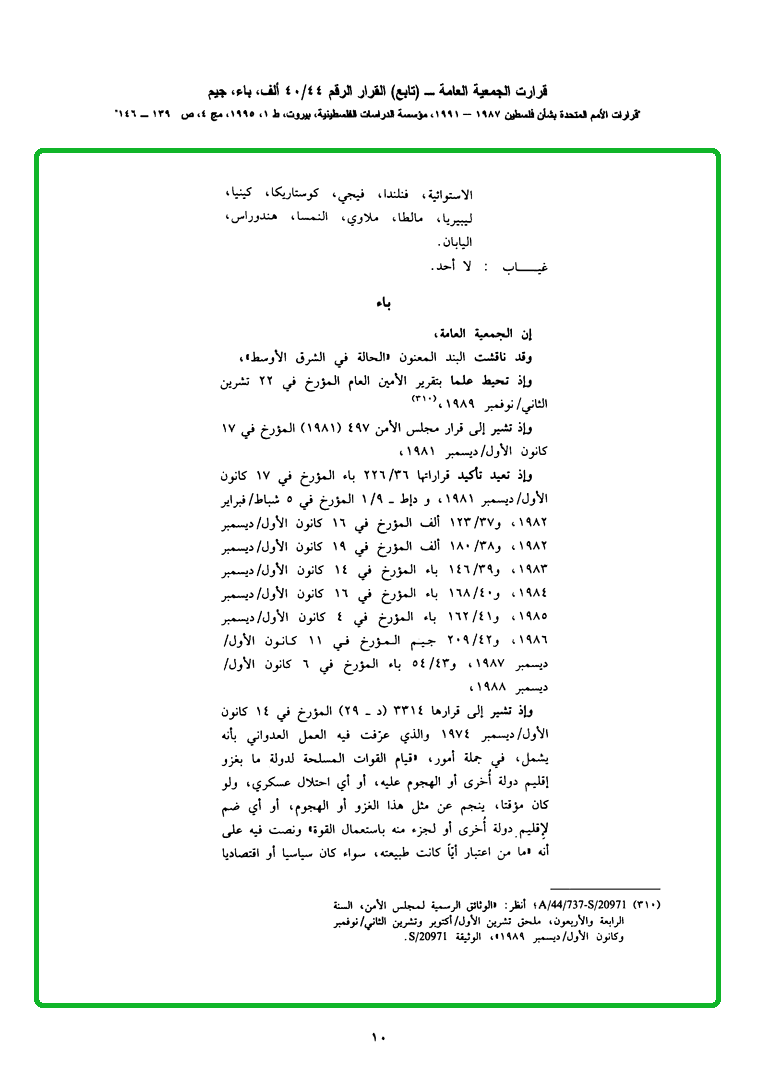 قرارت الجمعية العامة ــ (تابع) القرار الرقم ٤٠/٤٤ ألف، باء، جيم
"قرارات الأمم المتحدة بشأن فلسطين ١٩٨٧ – ١٩٩١، مؤسسة الدراسات الفلسطينية، بيروت، ط ١، ١٩٩٥، مج ٤، ص ١٣٩ ــ ١٤٦"
الاستوائية، فنلندا، فيجي، كوستاريكا، كينيا،
ليبيريا، مالطا، ملاوي، النمسا، هندوراس،
اليابان.
غيـــاب : لا أحد.
باء
إن الجمعية العامة،
وقد ناقشت البند المعنون «الحالة في الشرق الأوسط»،
وإذ تحيط علما بتقرير الأمين العام المؤرخ في ٢٢ تشرين
الثاني/نوفمبر ١٩٨٩،(٣١٠)
وإذ تشير إلى قرار مجلس الأمن ٤٩٧ (١٩٨١) المؤرخ في ١٧
كانون الأول/ديسمبر ١٩٨١،
وإذ تعيد تأكيد قراراتها ٢٢٦/٣٦ باء المؤرخ في ١٧ كانون
الأول/ديسمبر ١٩٨١، و دإط ـ ١/٩ المؤرخ في ٥ شباط/فبراير
١٩٨٢، و١٢٣/٣٧ ألف المؤرخ في ١٦ كانون الأول/ديسمبر
١٩٨٢، و١٨٠/٣٨ ألف المؤرخ في ١٩ كانون الأول/ديسمبر
١٩٨٣، و١٤٦/٣٩ باء المؤرخ في ١٤ كانون الأول/ديسمبر
١٩٨٤، و١٦٨/٤٠ باء المؤرخ في ١٦ كانون الأول/ديسمبر
١٩٨٥، و١٦٢/٤١ باء المؤرخ في ٤ كانون الأول/ديسمبر
١٩٨٦، و٢٠٩/٤٢ جيم المؤرخ في ١١ كانون الأول/
ديسمبر ١٩٨٧، و٥٤/٤٣ باء المؤرخ في ٦ كانون الأول/
ديسمبر ١٩٨٨،
وإذ تشير إلى قرارها ٣٣١٤ (د ـ ٢٩) المؤرخ في ١٤ كانون
الأول/ديسمبر ١٩٧٤ والذي عرّفت فيه العمل العدواني بأنه
يشمل، في جملة أمور، «قيام القوات المسلحة لدولة ما بغزو
إقليم دولة أُخرى أو الهجوم عليه، أو أي احتلال عسكري، ولو
كان مؤقتا، ينجم عن مثل هذا الغزو أو الهجوم، أو أي ضم
لإقليم دولة أُخرى أو لجزء منه باستعمال القوة» ونصت فيه على
أنه «ما من اعتبار أيّاً كانت طبيعته، سواء كان سياسيا أو اقتصاديا
(٣١٠) A/44/737-S/20971؛ أنظر: «الوثائق الرسمية لمجلس الأمن، السنة
الرابعة والأربعون، ملحق تشرين الأول/أكتوبر وتشرين الثاني/نوفمبر
وكانون الأول/ديسمبر ١٩٨٩»، الوثيقة S/20971.
١٠